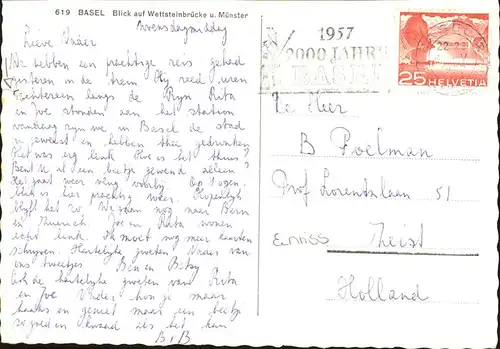 619 BASEL Blick auf Wettsteinbrücke u. Münster
Woensdagmiddag
1957
2000 JAHRE
BASEL
25 HELVETIA
Lieve Vader
We hebben een prachtige reis gehad
gisteren in de trein. Hij reed uren
achtereen langs de Rijn. Rita
en Joe stonden aan het station
vandaag zijn we in Basel de stad
in geweest en hebben thee gedronken
Het was erg leuk. Hoe is het thuis?
Bent U al een beetje gewend alleen
Het gaat weer vlug voorbij.
is hier prachtig weer. Hopenlijk
blijft het zo. We gaan nog naar Bern
en Zürich. Joe en Rita wonen
echt leuk. Ik moet nog meer kaarten
schrijven. Hartelijke groeten Vader van
ons tweetjes Ben en
Ook de hartelijke groeten van Rita
en Joe Vader hou je maar
haaks en geniet maar een beetje
zo goed en kwaad als het kan
B + B
De Heer
B Poelman
Prof Lorentzlaan 51
Zeist
Holland